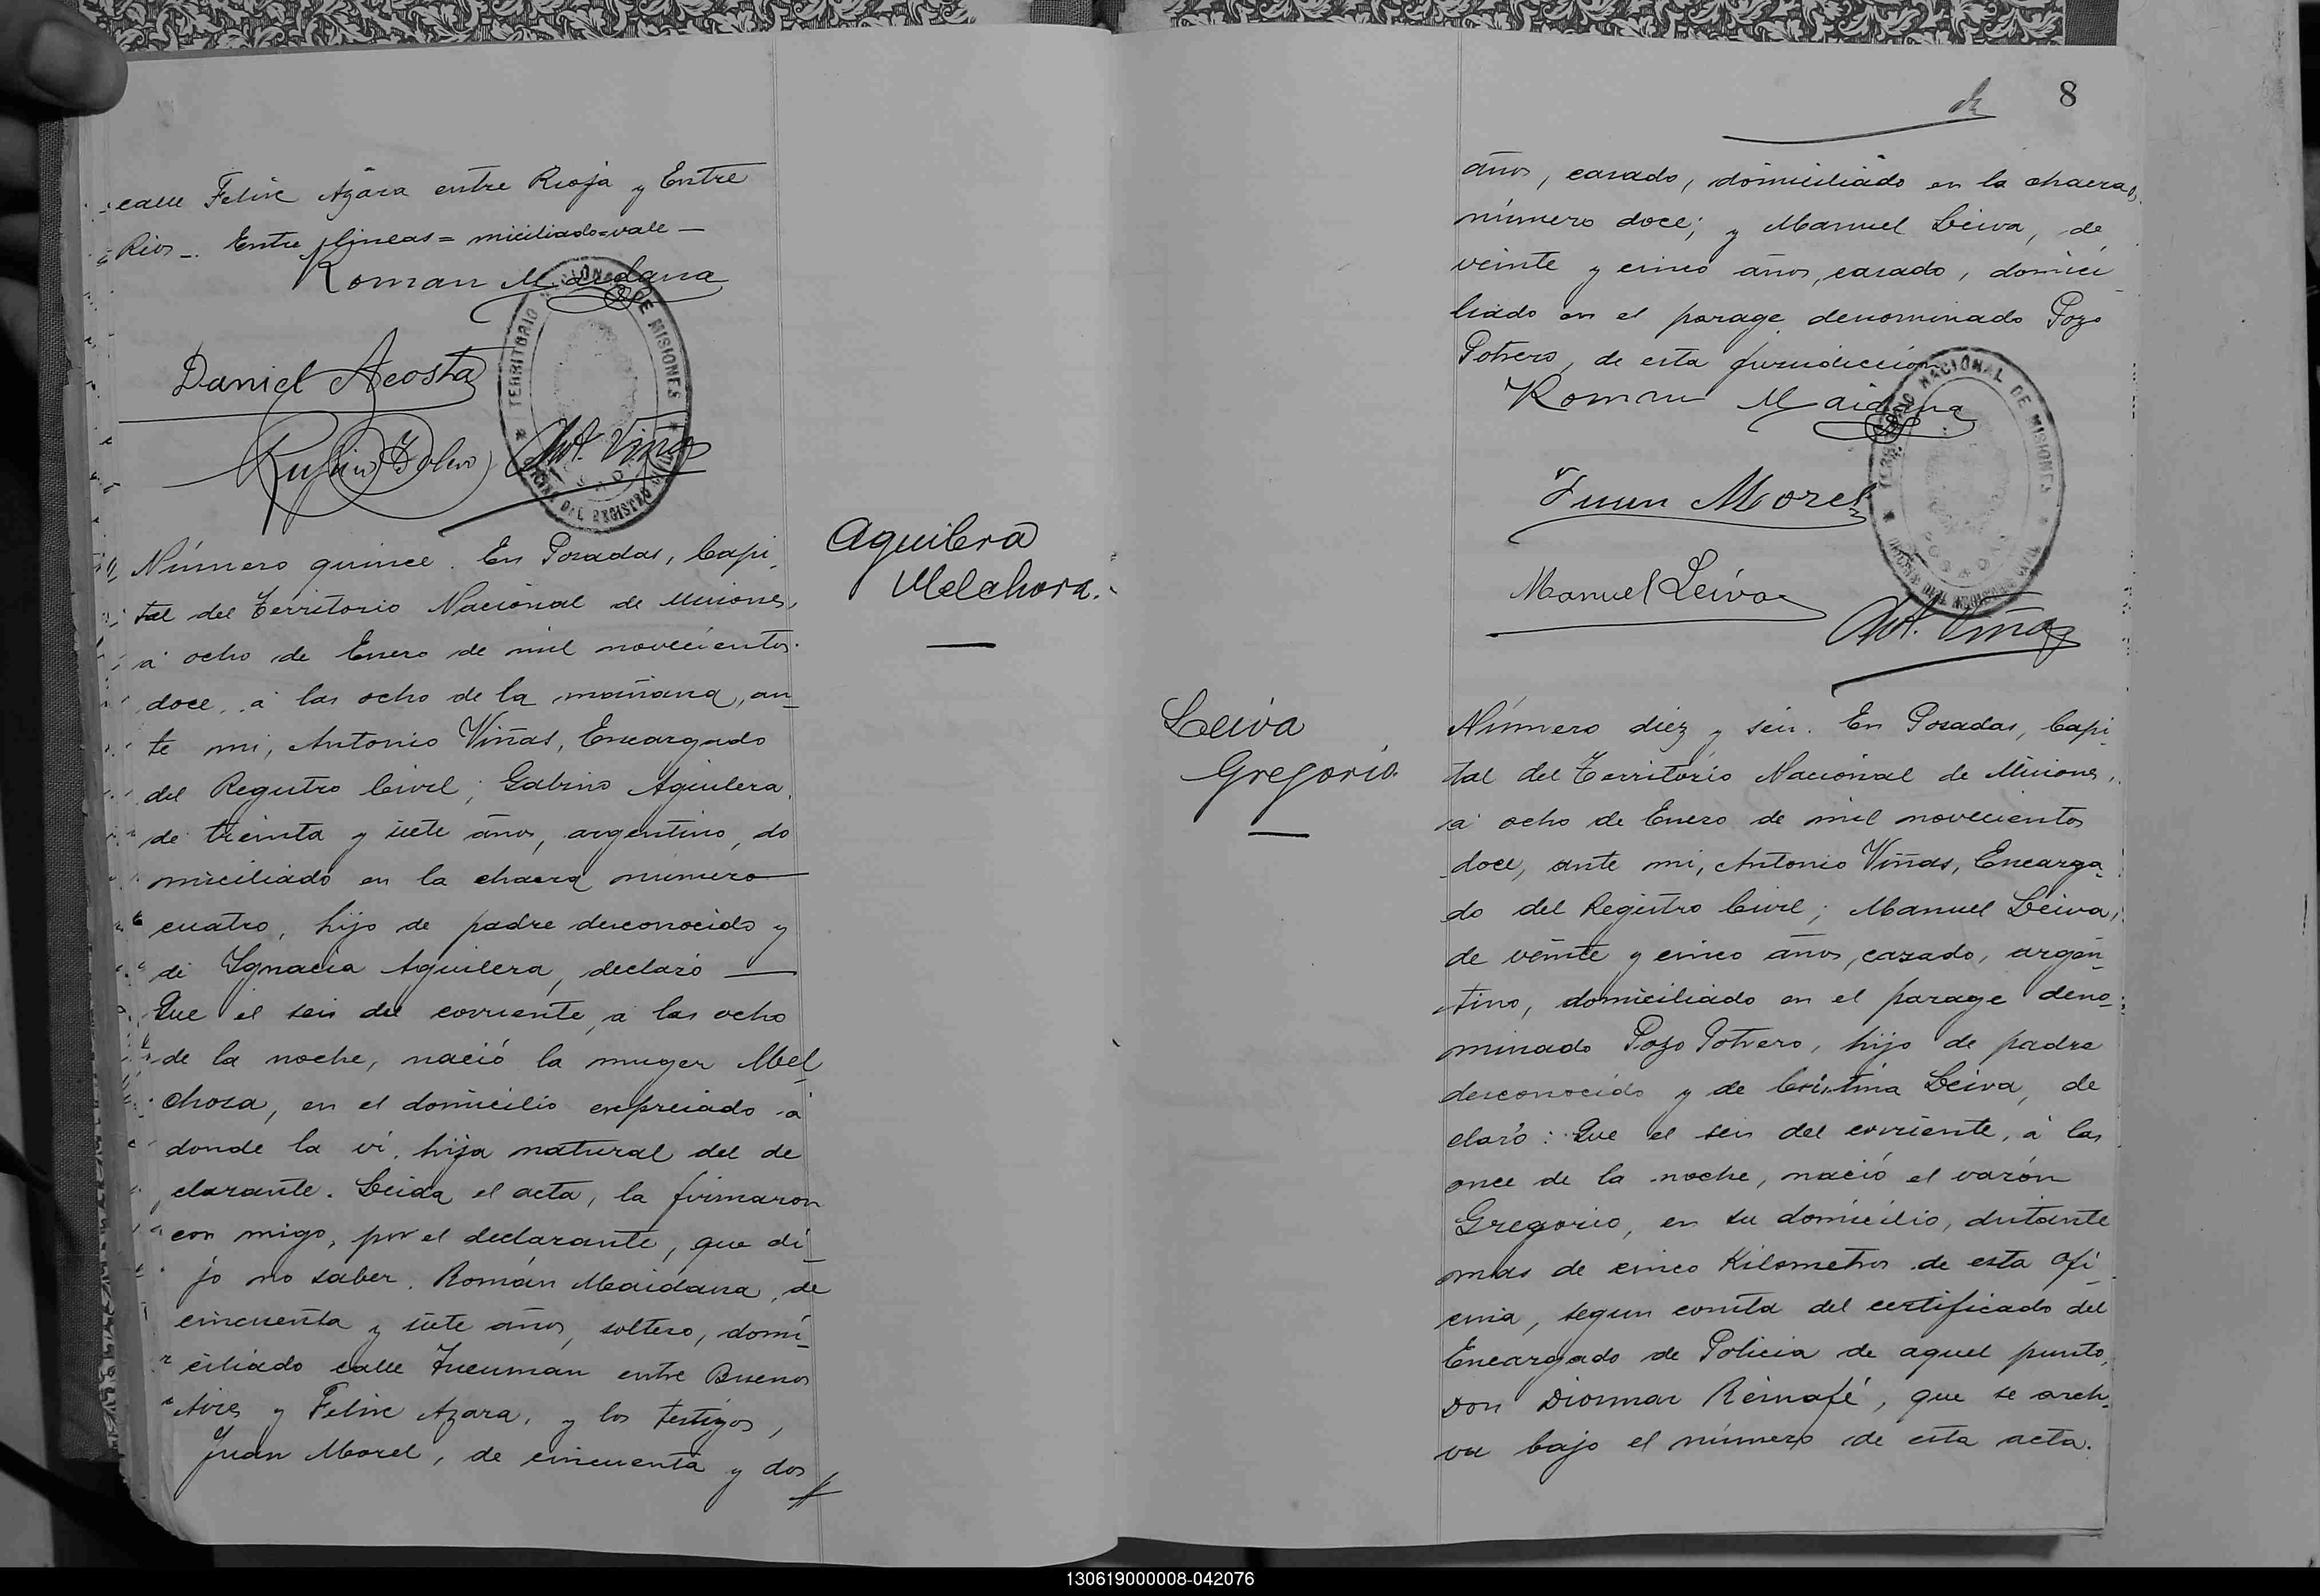 calle Felix Azára entre Rioja y Entre
Rios_. Entre lineas = miciliado = vale —
Roman Maidana
Daniel Acosta
Ant. Viñas
TERRITORIO NACIONAL DE MISIONES
OFICINA DEL REGISTRO CIVIL
Aguilera
Melchora.
Número quince. En Posadas, Capi_
tal del Territorio Nacional de Misiones,
á ocho de Enero de mil novecientos
doce, á las ocho de la mañana, an_
te mi, Antonio Viñas, Encargado
del Registro Civil; Gabino Aguilera,
de treinta y siete años, argentino, do
miciliado en la chacra número —
cuatro, hijo de padre desconocido y
de Ygnacia Aguilera, declaró —
Que el seis del corriente, á las ocho
de la noche, nació la muger Mel_
chora, en el domicilio expresado á
donde la ví, hija natural del de
clarante. Leida el acta, la firmaron
con migo, por el declarante, que di_
jo no saber. Román Maidana, de
cincuenta y siete años, soltero, domi_
ciliado calle Tucumán entre Buenos
Aires y Felix Azara, y los testigos,
Juan Morel, de cincuenta y dos
8
años, casado, domiciliado en la chacra
número doce; y Manuel Leiva, de
veinte y cinco años, casado, domici_
liado en el parage denominado Pozo
Potrero, de esta jurisdicción
Roman Maidana
Juan Morel
Manuel Leiva
Ant. Viñas
TERRITORIO NACIONAL DE MISIONES
POSADAS
OFICINA DEL REGISTRO CIVIL
Leiva
Gregorio.
Número diez y seis. En Posadas, Capi_
tal del Territorio Nacional de Misiones,
á ocho de Enero de mil novecientos
doce, ante mi, Antonio Viñas, Encarga_
do del Registro Civil; Manuel Leiva,
de veinte y cinco años, casado, argen_
tino, domiciliado en el parage deno_
minado Pozo Potrero, hijo de padre
desconocido y de Cristina Leiva, de
claró: Que el seis del corriente, á las
once de la noche, nació el varón
Gregorio, en su domicilio, distante
mas de cinco Kilometros de esta Ofi_
cina, segun consta del certificado del
Encargado de Policia de aquel punto,
Don Diomar Reinafé, que se archi_
va bajo el número de esta acta.
130619000008-042076